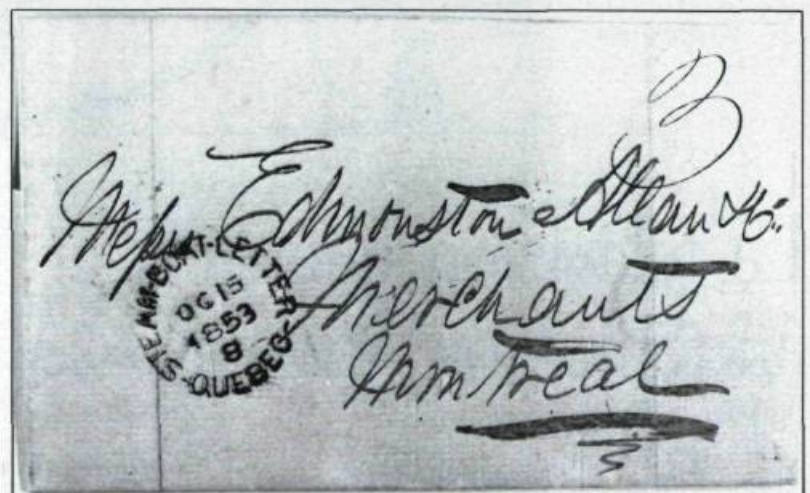 3
Messrs Edmonstone Allan & Co.
Merchants
Montreal
STEAM-BOAT-LETTER
OC 15
1853
8
QUEBEC